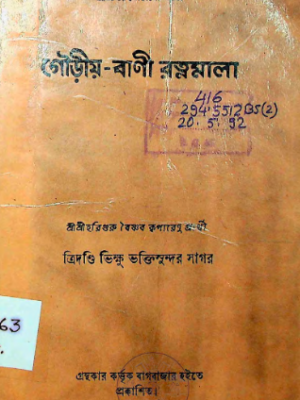 গৌড়ীয়-বাণী রত্নমালা
416
294.5512BS(2)
20.5.92
শ্রীশ্রীহরিগুরু বৈষ্ণব কৃপারেণু প্রার্থী
ত্রিদণ্ডি ভিক্ষু ভক্তিসুন্দর সাগর
63
গ্রন্থকার কর্ত্তৃক বাগবাজার হইতে
প্রকাশিত।